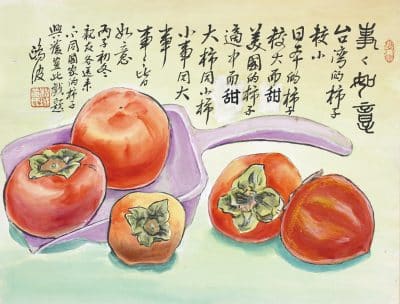 事々如意
台湾的柿子
較小
日本的柿子
較大而甜
美國的柿子
適中而甜
大柿同小柿
小事同大
事
事々皆
如意
丙子初冬
親友各送來
不同國家的柿子
興 此戲題